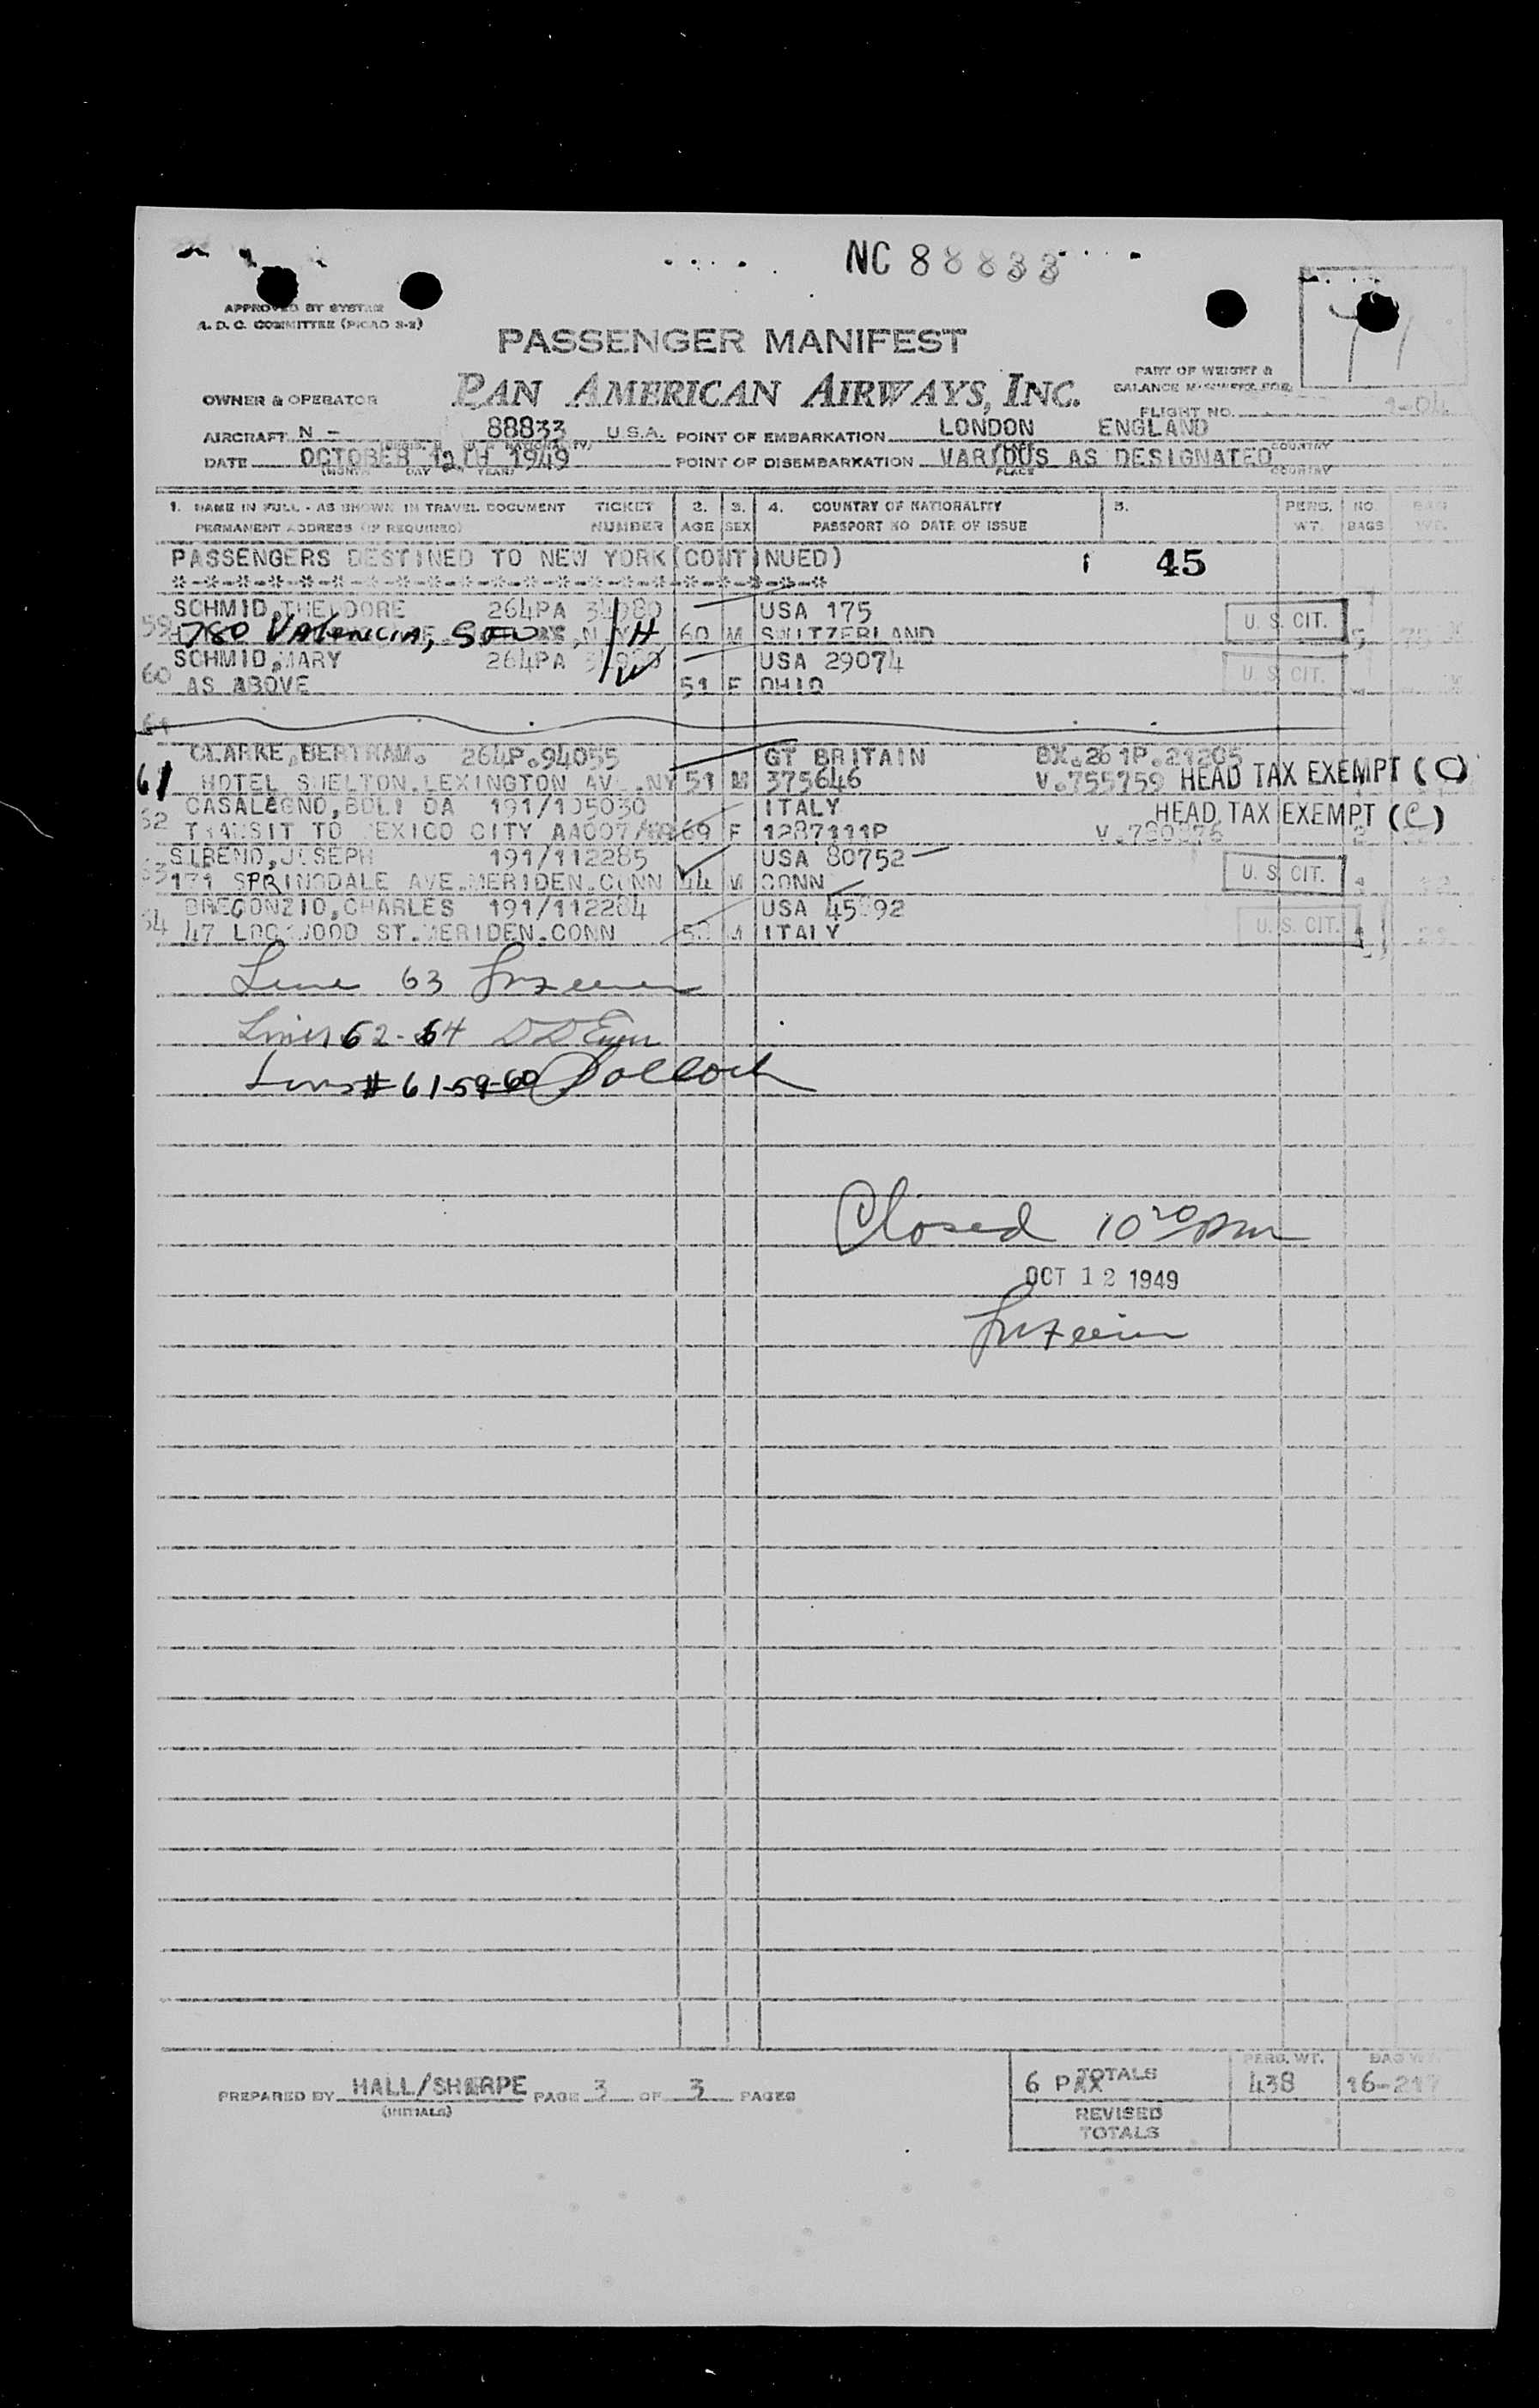 NC 88833
APPROVED BY SYSTEM
A. D. C. COMMITTEE (PICAO 2-2)
PASSENGER MANIFEST
PART OF WEIGHT &
OWNER & OPERATOR PAN AMERICAN AIRWAYS, INC.
FLIGHT NO.
AIRCRAFT N - 88833 U.S.A. POINT OF EMBARKATION LONDON ENGLAND
DATE OCTOBER 12TH 1949 POINT OF DISEMBARKATION VARIOUS AS DESIGNATED
MONTH DAY YEAR PLACE COUNTRY
1. NAME IN FULL - AS SHOWN IN TRAVEL DOCUMENT TICKET 2. 3. 4. COUNTRY OF NATIONALITY 5. PERS. NO. BAG
PERMANENT ADDRESS (IF REQUIRED) NUMBER AGE SEX PASSPORT NO DATE OF ISSUE WT. BAGS WT.
PASSENGERS DESTINED TO NEW YORK(CONTINUED) 45
*-*-*-*-*-*-*-*-*-*-*-*-*-*-*-*-*-*-*-*-*
SCHMID,THEODORE 264PA 34980 USA 175
59 780 Valencia, 60 M SWITZERLAND U. S. CIT.
SCHMID,MARY 264PA USA 29074
60 AS ABOVE 51 F OHIO U. S. CIT.
61
CLARKE,BERTRAM. 264P.94055 GT BRITAIN BX.261P.21205
61 HOTEL SHELTON.LEXINGTON AV .NY 51 M 375646 V.755759 HEAD TAX EXEMPT (C)
CASALEGNO, 191/105030 ITALY HEAD TAX EXEMPT (C)
62 TRANSIT TO MEXICO CITY AA007/ 69 F 1287111P
JOSEPH 191/112285 USA 80752
63 171 SPRINGDALE AVE.MERIDEN.CONN 44 M CONN U. S. CIT.
BREGONZIO,CHARLES 191/112284 USA
64 47 LOCKWOOD ST.MERIDEN.CONN M ITALY U. S. CIT.
Line 63
Lines 62-64
Lines # 61-59-60 Pollock
Closed 10 20 pm
OCT 12 1949
PREPARED BY HALL/SHARPE PAGE 3 OF 3 PAGES
(INITIALS)
PERS. WT. BAG WT.
6 PAX TOTALS 438 16-217
REVISED
TOTALS